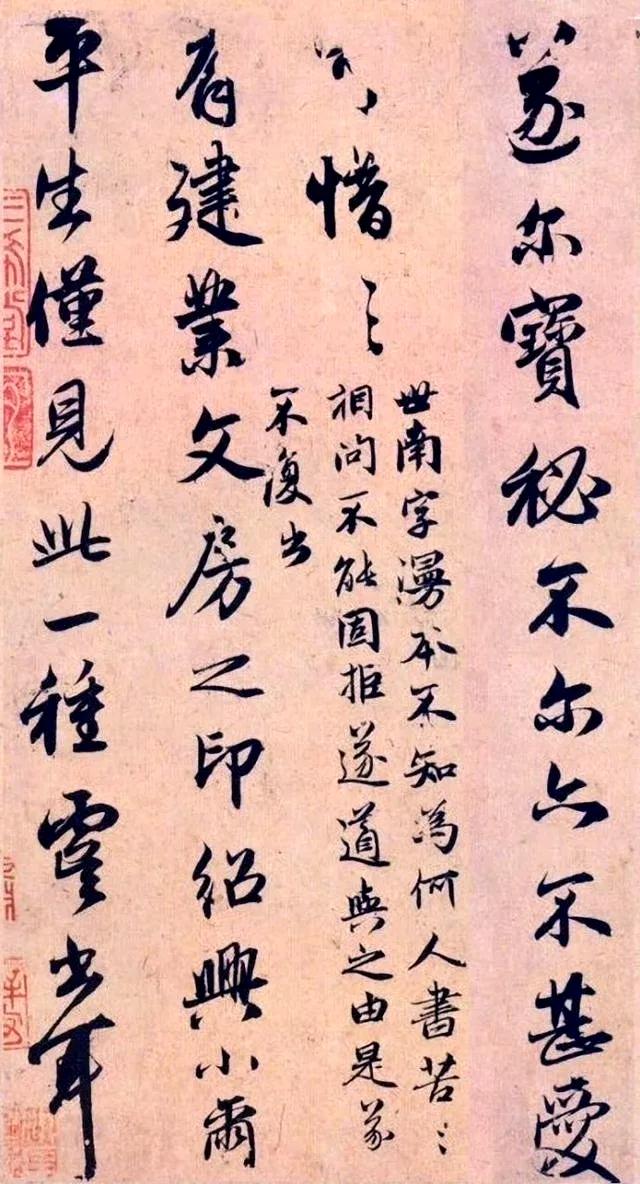 遂尔寶秘不尔亦不甚愛
可惜〻
世南字漫本不知為何人書苦〻
相問不能固拒遂道與之由是遂
不復出
有建業文房之印紹興小璽
平生僅見此一種虞書耳